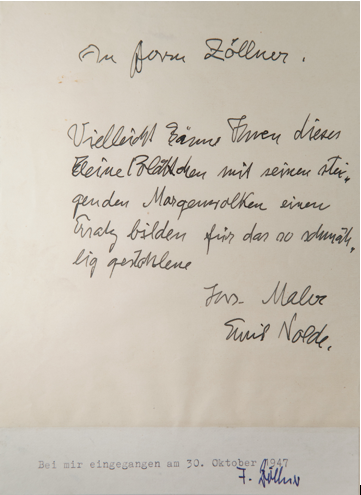 An Herrn Zöllner.
Vielleicht kann Ihnen dieses
kleine Blättchen mit seinen stei„
genden Morgenwolken einen
Ersatz bilden für das so schmäh„
lig gestohlene
Ihr Maler
Emil Nolde.
Bei mir eingegangen am 30. Oktober 1947
F. Zöllner